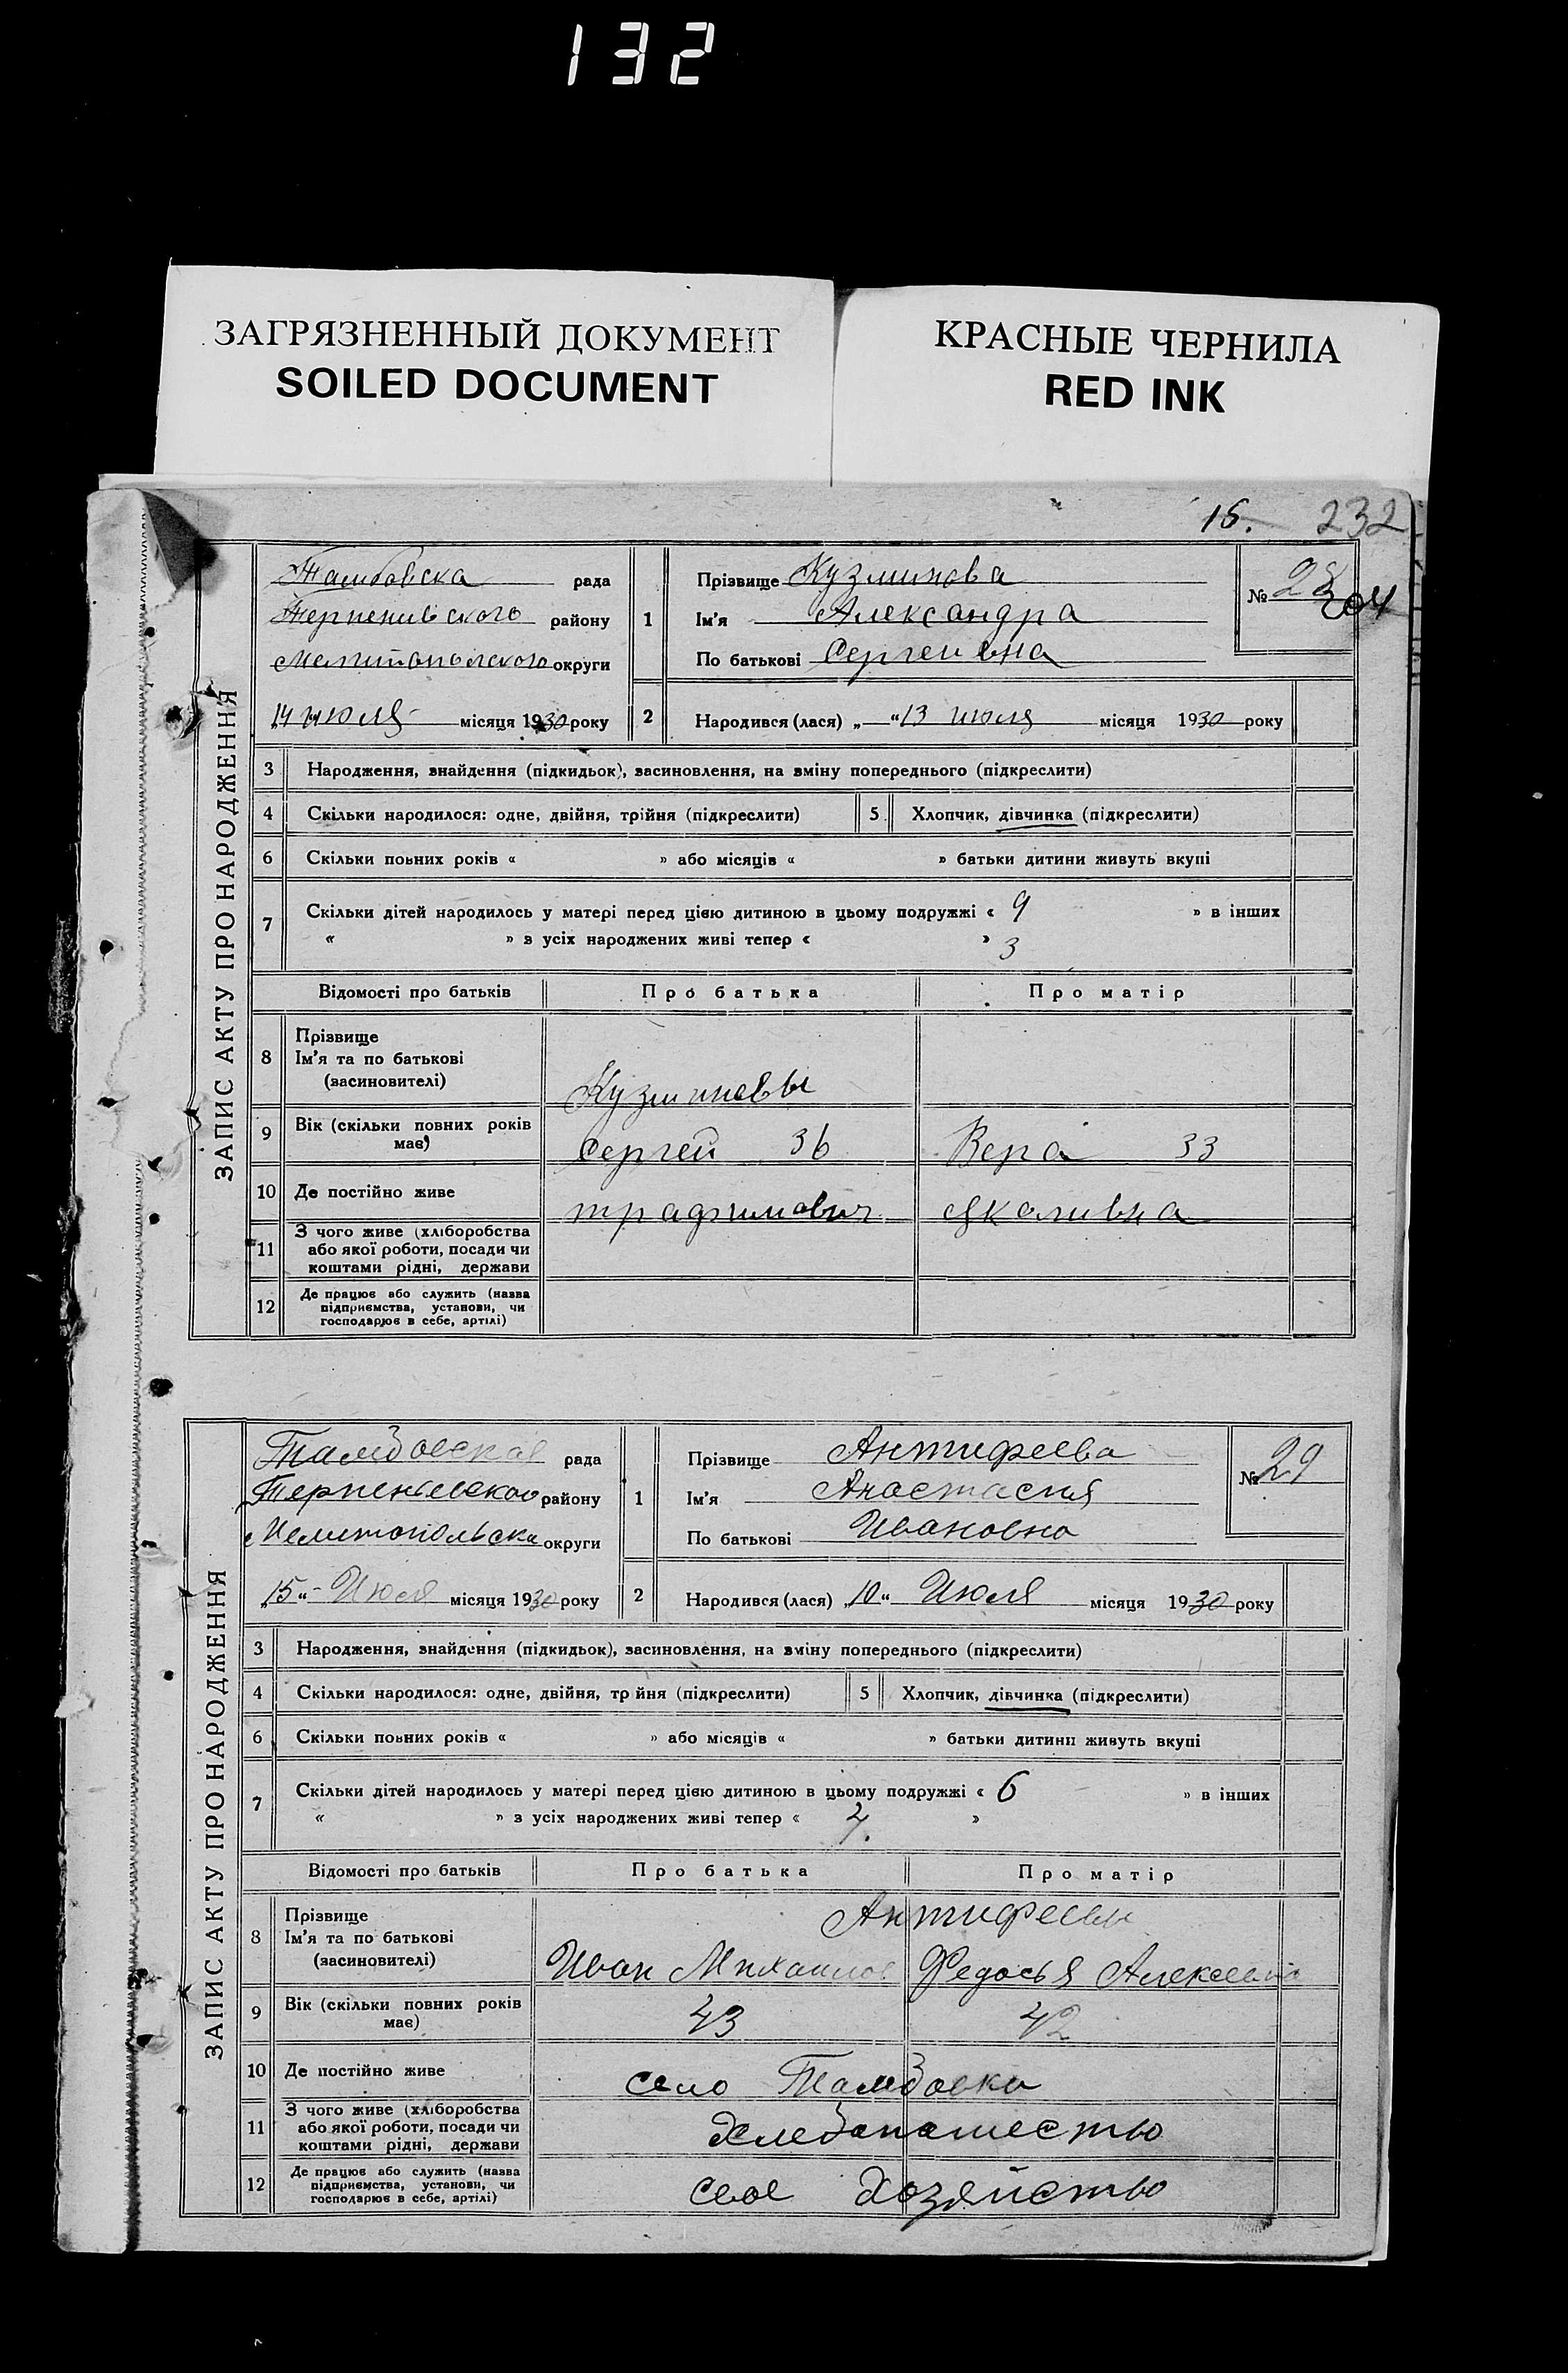 132
ЗАГРЯЗНЕННЫЙ ДОКУМЕНТ
SOILED DOCUMENT
КРАСНЫЕ ЧЕРНИЛА
RED INK
15. 232
ЗАПИС АКТУ ПРО НАРОДЖЕННЯ
Тамбовска рада
Терпенивского району
Мелитополского округи
„14 июля місяця 1930 року
1 Прізвище Кузминова
Ім'я Александра
По батькові Сергеивна
№ 28
204
2 Народився (лася) „ “ 13 июля місяця 1930 року
3 Народження, знайдення (підкидьок), засиновлення, на зміну попереднього (підкреслити)
4 Скільки народилося: одне, двійня, трійня (підкреслити) 5 Хлопчик, дівчинка (підкреслити)
6 Скільки повних років « » або місяців « » батьки дитини живуть вкупі
7 Скільки дітей народилось у матері перед цією дитиною в цьому подружжі « 9 » в інших
« » з усіх народжених живі тепер « » 3
Відомості про батьків Про батька Про матір
8 Прізвище
Ім'я та по батькові
(засиновителі)
Кузминовы
9 Вік (скільки повних років
має)
Сергей 36 Вера 33
10 Де постійно живе
трафимович Яколивна
11 З чого живе (хліборобства
або якої роботи, посади чи
коштами рідні, держави
12 Де працює або служить (назва
підприємства, установи, чи
господарює в себе, артілі)
ЗАПИС АКТУ ПРО НАРОДЖЕННЯ
Тамбовская рада
Терпеньевского району
Мелитопольска округи
„15“ Июля місяця 1930 року
1 Прізвище Антифеева
Ім'я Анастасия
По батькові Ивановна
№ 29
2 Народився (лася) „10“ Июля місяця 1930 року
3 Народження, знайдення (підкидьок), засиновлення, на зміну попереднього (підкреслити)
4 Скільки народилося: одне, двійня, трійня (підкреслити) 5 Хлопчик, дівчинка (підкреслити)
6 Скільки повних років « » або місяців « » батьки дитини живуть вкупі
7 Скільки дітей народилось у матері перед цією дитиною в цьому подружжі « 6 » в інших
« » з усіх народжених живі тепер « 4. »
Відомості про батьків Про батька Про матір
8 Прізвище
Ім'я та по батькові
(засиновителі)
Антифеевы
Иван Михаилов Федосья Алексеевна
9 Вік (скільки повних років
має)
43 42
10 Де постійно живе
село Тамбовка
11 З чого живе (хліборобства
або якої роботи, посади чи
коштами рідні, держави
Хлебопашество
12 Де працює або служить (назва
підприємства, установи, чи
господарює в себе, артілі)
свое Хозяйство